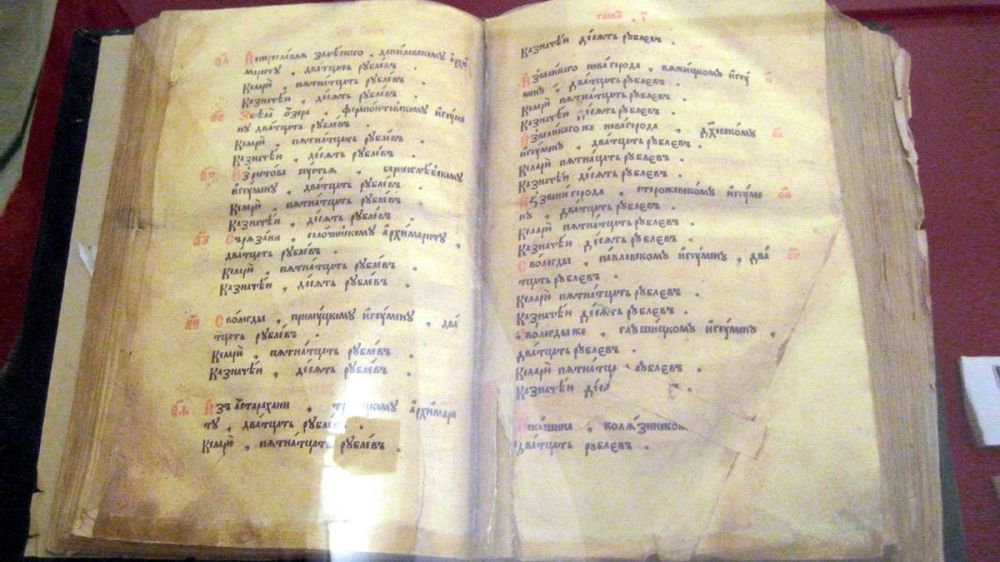 Переславля залѣского, даниловскому архи
мариту, дватцать рублевъ.
Келарю, пятнатцать рублевъ.
Казначѣю, десять рублевъ.
Збѣла озера, ферапонтовскому игумε
ну дватцать рублевъ.
Келарю, пятнатцать рублевъ.
Казначѣю, десять рублевъ.
устья, борисоглѣбскому
игумену, дватцать рублевъ.
Келарю, пятнатцать рублевъ.
Казначѣю, десять рублевъ.
Сърязана, солочинскому архимариту,
дватцать рублевъ.
Келарю, пятнатцать рублевъ.
Казначѣю, десять рублевъ.
Свологды, прилуцкому игумену, два
тцать рублевъ.
Келарю, пятнатцать рублевъ.
Казначѣю, десять рублевъ.
Изъ астарахани, архимари
ту, дватцать рублевъ.
Келарю, пятнатцать рублевъ.
глава, ї
Казначѣю десять рублевъ.
Извеликого нова города, вяжицкому игу
мену, дватцать рублевъ.
Келарю пятнатцать рублевъ.
Казначѣю десять рублевъ.
Извеликагоже новагорода, духовскому
игумену, дватцать рублевъ.
Келарю пятнатцать рублевъ.
Казначѣю десять рублевъ.
Изъзвенигорода, сторожевскому игуме
ну, дватцать рублевъ.
Келарю пятнатцать рублевъ.
Казначѣю десять рублевъ.
Свологды, павловскому игумену, два
тцать рублевъ.
Келарю пятнатцать рублевъ.
Казначѣю десять рублевъ.
Свологды же, глушицкому игумену,
дватцать рублевъ.
Келарю пятнатцать рублевъ.
Казначѣю
колязинскому
дватцать рублевъ.